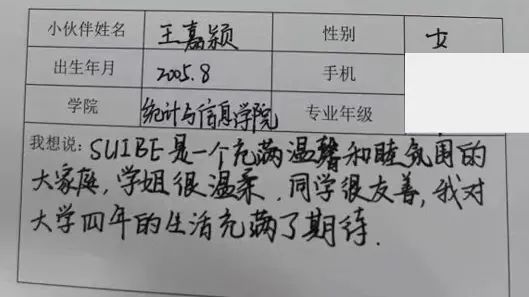 小伙伴姓名 王嘉颖 性别 女
出生年月 2005.8 手机
学院 统计与信息学院 专业年级
我想说: SUIBE是一个充满温馨和睦氛围的
大家庭,学姐很温柔.同学很友善,我对
大学四年的生活充满了期待.